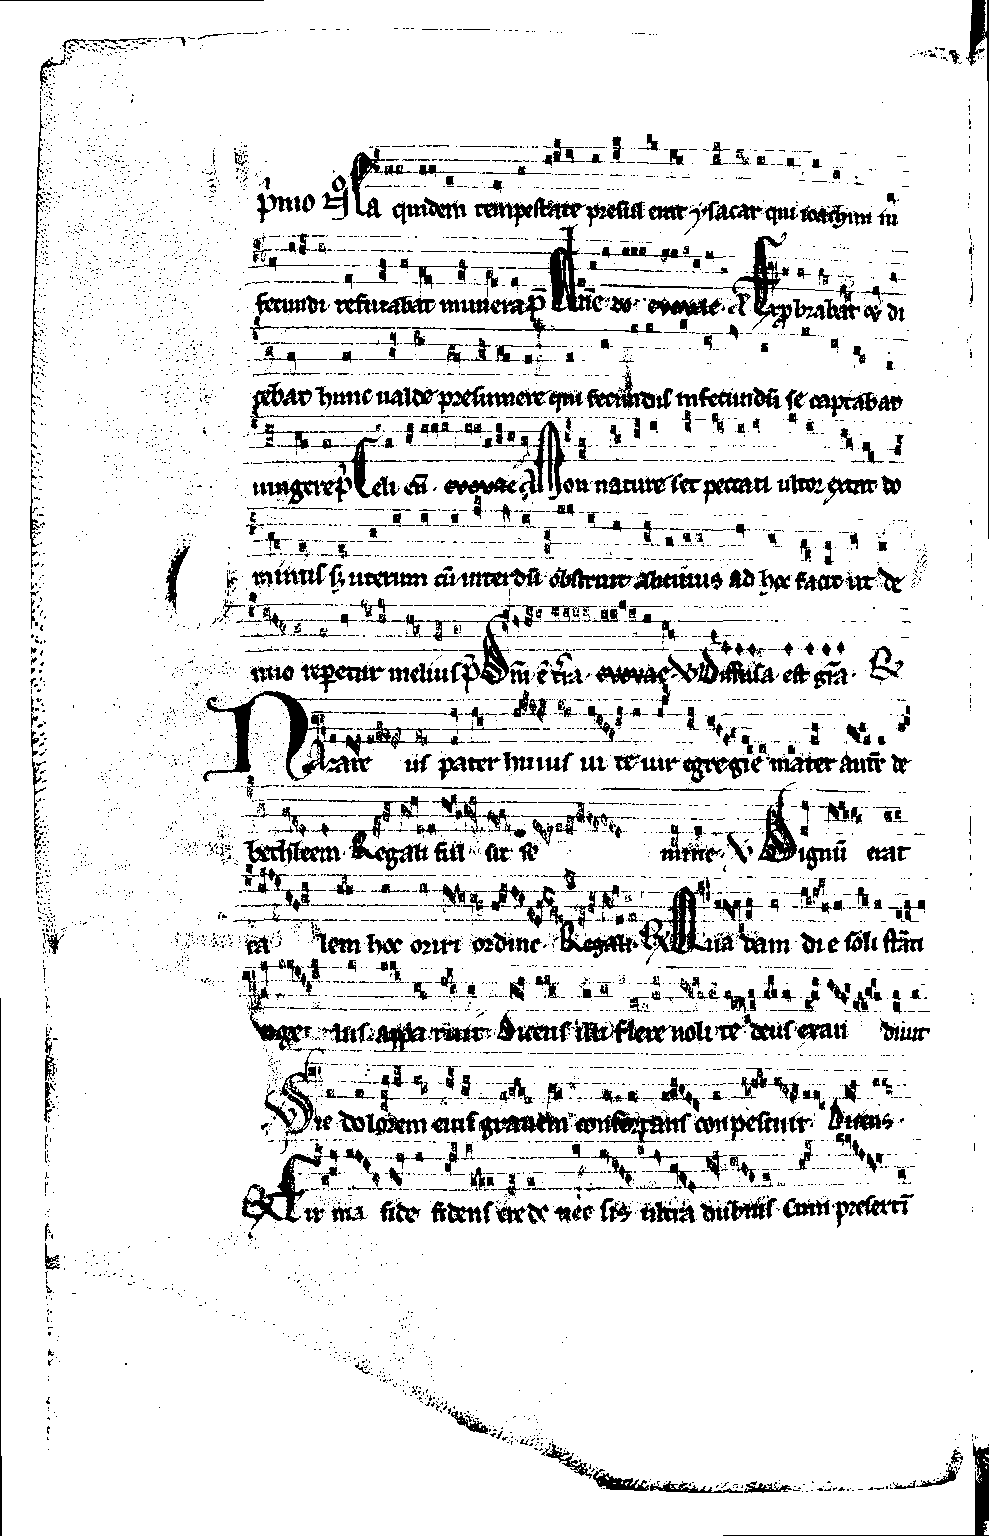 p̄mo Ea quidem tempestate presul erat ysacar qui ioachim in
fecundi refutabat munera p̄ Bn̄e do evovae a Exp̄brabat &
cebat hunc valde presumere qui fecundis infecundū se captabat
iungere p̄ Celi en̄ evovae a Non nature set peccati ultor extat do
minus sʒ uterum cū interdū obstruit altius ad hoc facit ut de
nuo repetat melius p̄ Dn̄i ē t̄ra evovae V Diffusa est gr̄a R
Nazare us pater huius ui te uir egregie mater aute de
bethleem Regali fuit sit se mine V Dignū erat
ta lem hoc oriri ordine Regali R Qua dam die soli stāti
ange lus appa ruit Dicens illi flere noli te deus exau diuit
V Sic dolorem eius grauem confortans conpescuit Dicens
R Fir ma fide fidens crede nec sis ultra dubius Cum presertī